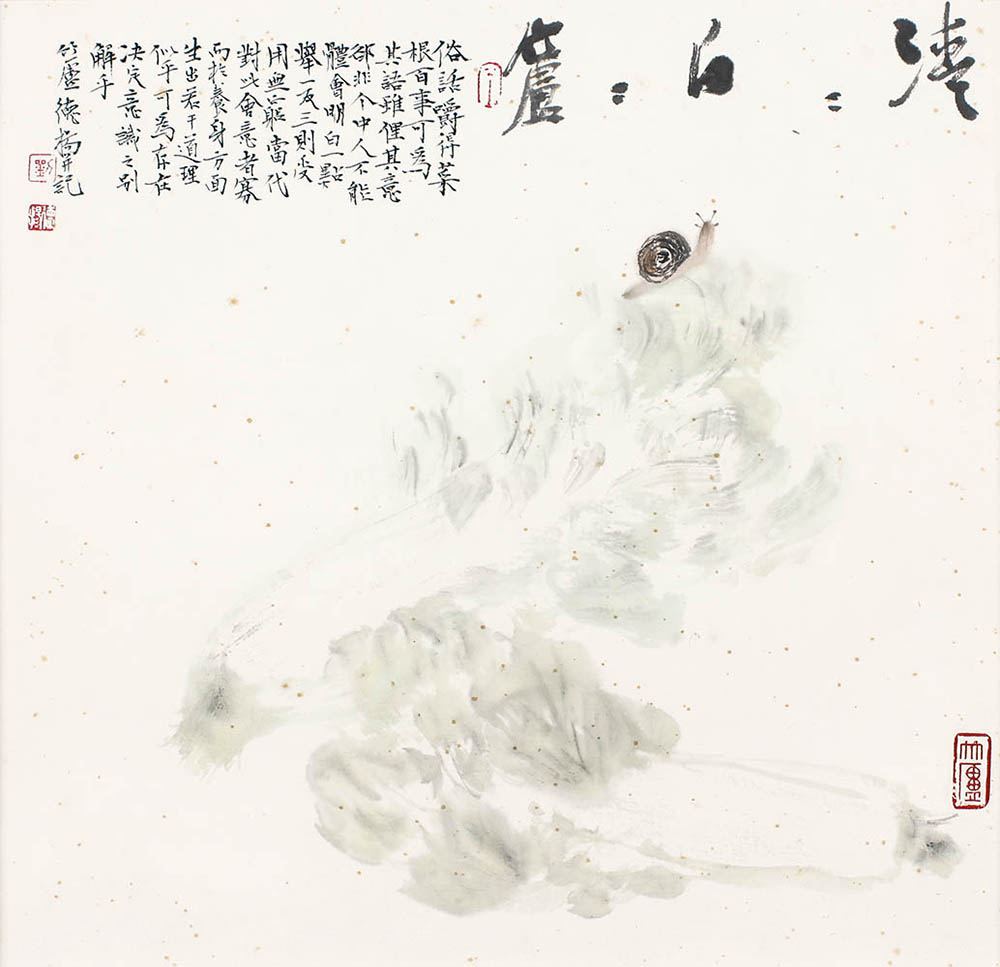 清：白：
俗話嚼得菜
根百事可爲
其語雖俚其意
卻非个中人不能
體會明白一點
舉一反三則受
用無窮當代
對此會意者寡
而於養身方面
生出若干道理
似乎可爲存在
決定意識之別
解乎
竹廬德橋并記
劉